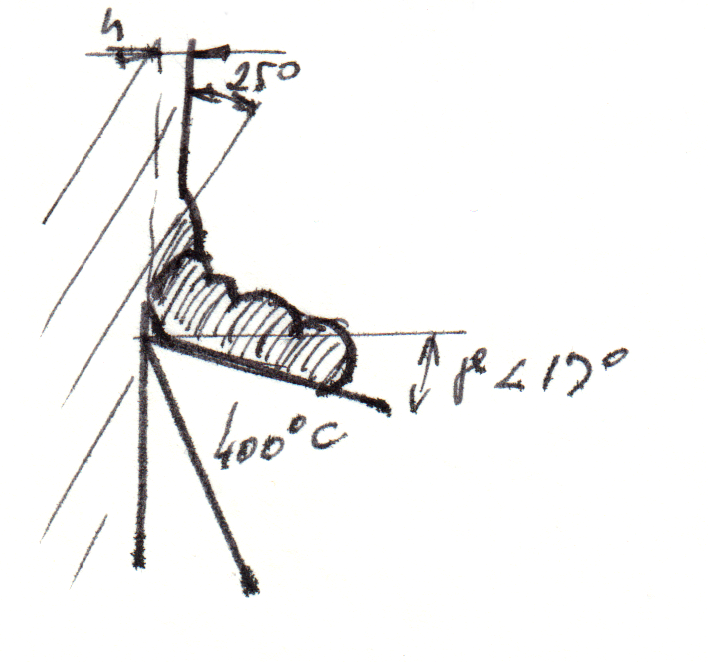 h
25°
γ < 17°
400°C